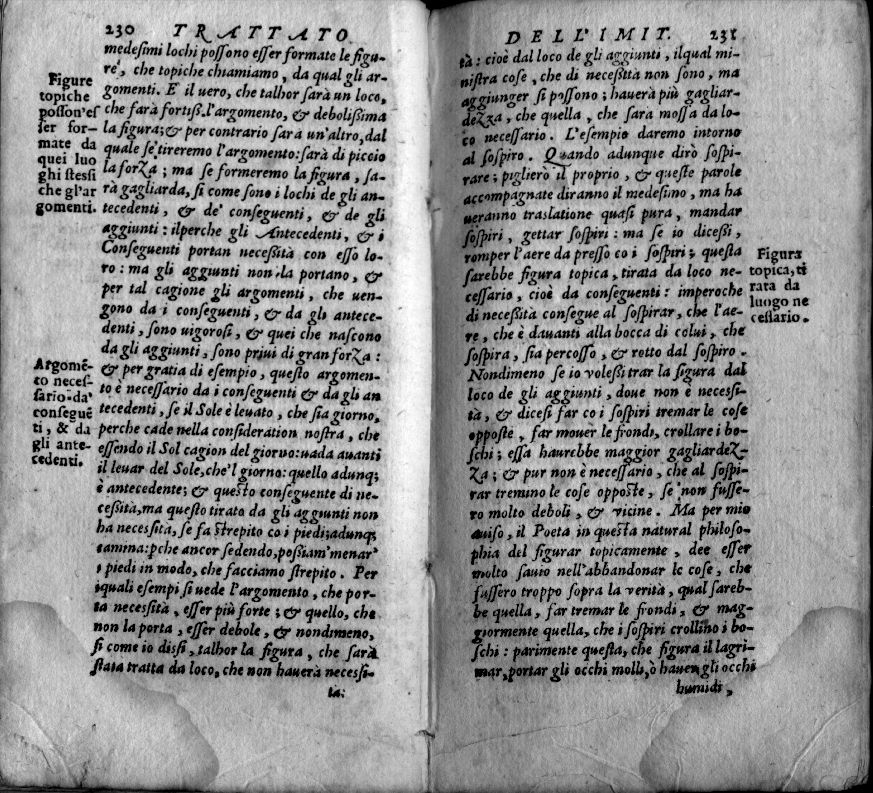 230 TRATTATO
medesimi lochi possono esser formate le figu-
re, che topiche chiamiamo, da qual gli ar-
gomenti. E il uero, che talhor sarà un loco,
che farà fortiss. l'argomento, & debolissima
la figura; & per contrario sarà un'altro, dal
quale se tireremo l'argomento: sarà di picciola
la forza; ma se formeremo la figura, sa-
rà gagliarda, si come sono i lochi de gli an-
tecedenti, & de' conseguenti, & de gli
aggiunti: ilperche gli Antecedenti, & i
Conseguenti portan necessità con esso lo-
ro: ma gli aggiunti non la portano, &
per tal cagione gli argomenti, che uen-
gono da i conseguenti, & da gli antece-
denti, sono uigorosi, & quei che nascono
da gli aggiunti, sono priui di gran forza:
& per gratia di esempio, questo argomen-
to è necessario da i conseguenti & da gli an
tecedenti, se il Sole è leuato, che sia giorno,
perche cade nella consideration nostra, che
essendo il Sol cagion del giorno: uada auanti
il leuar del Sole, che'l giorno: quello adunq;
è antecedente; & questo conseguente di ne-
cessità, ma questo tirato da gli aggiunti non
ha necessita, se fa strepito co i piedi; adunq;
camina: pche ancor sedendo, possiam' menar'
i piedi in modo, che facciamo strepito. Per
iquali esempi si uede l'argomento, che por-
ta necessità, esser più forte; & quello, che
non la porta, esser debole, & nondimeno,
si come io dissi, talhor la figura, che sarà
stata tratta da loco, che non hauerà necessi-
tà:
Figure
topiche
posson'es
ser for-
mate da
quei luo
ghi stessi
che gl'ar
gomenti.
Argomē-
to neces-
sario da'
conseguē
ti, & da
gli ante-
cedenti.
DELL'IMIT. 231
tà: cioè dal loco de gli aggiunti, ilqual mi-
nistra cose, che di necessità non sono, ma
aggiunger si possono; hauerà più gagliar-
dezza, che quella, che sara mossa da lo-
co necessario. L'esempio daremo intorno
al sospiro. Quando adunque dirò sospi-
rare; piglierò il proprio, & queste parole
accompagnate diranno il medesimo, ma ha
ueranno traslatione quasi pura, mandar
sospiri, gettar sospiri: ma se io dicessi,
romper l'aere da presso co i sospiri; questa
sarebbe figura topica, tirata da loco ne-
cessario, cioè da conseguenti: imperoche
di necessità consegue al sospirar, che l'ae-
re, che è dauanti alla bocca di colui, che
sospira, sia percosso, & rotto dal sospiro.
Nondimeno se io volessi trar la figura dal
loco de gli aggiunti, doue non è necessi-
tà, & dicessi far co i sospiri tremar le cose
opposte, far mouer le frondi, crollare i bo-
schi; essa haurebbe maggior gagliardez-
za; & pur non è necessario, che al sospi-
rar tremino le cose opposte, se non fusse-
ro molto deboli, & vicine. Ma per mio
auiso, il Poeta in questa natural philoso-
phia del figurar topicamente, dee esser
molto sauio nell'abbandonar le cose, che
fussero troppo sopra la verità, qual sareb-
be quella, far tremar le frondi, & mag-
giormente quella, che i sospiri crollino i bo-
schi: parimente questa, che figura il lagri-
mar, portar gli occhi molli, ò hauer gli occhi
humidi,
Figura
topica, ti
rata da
luogo ne
cessario.